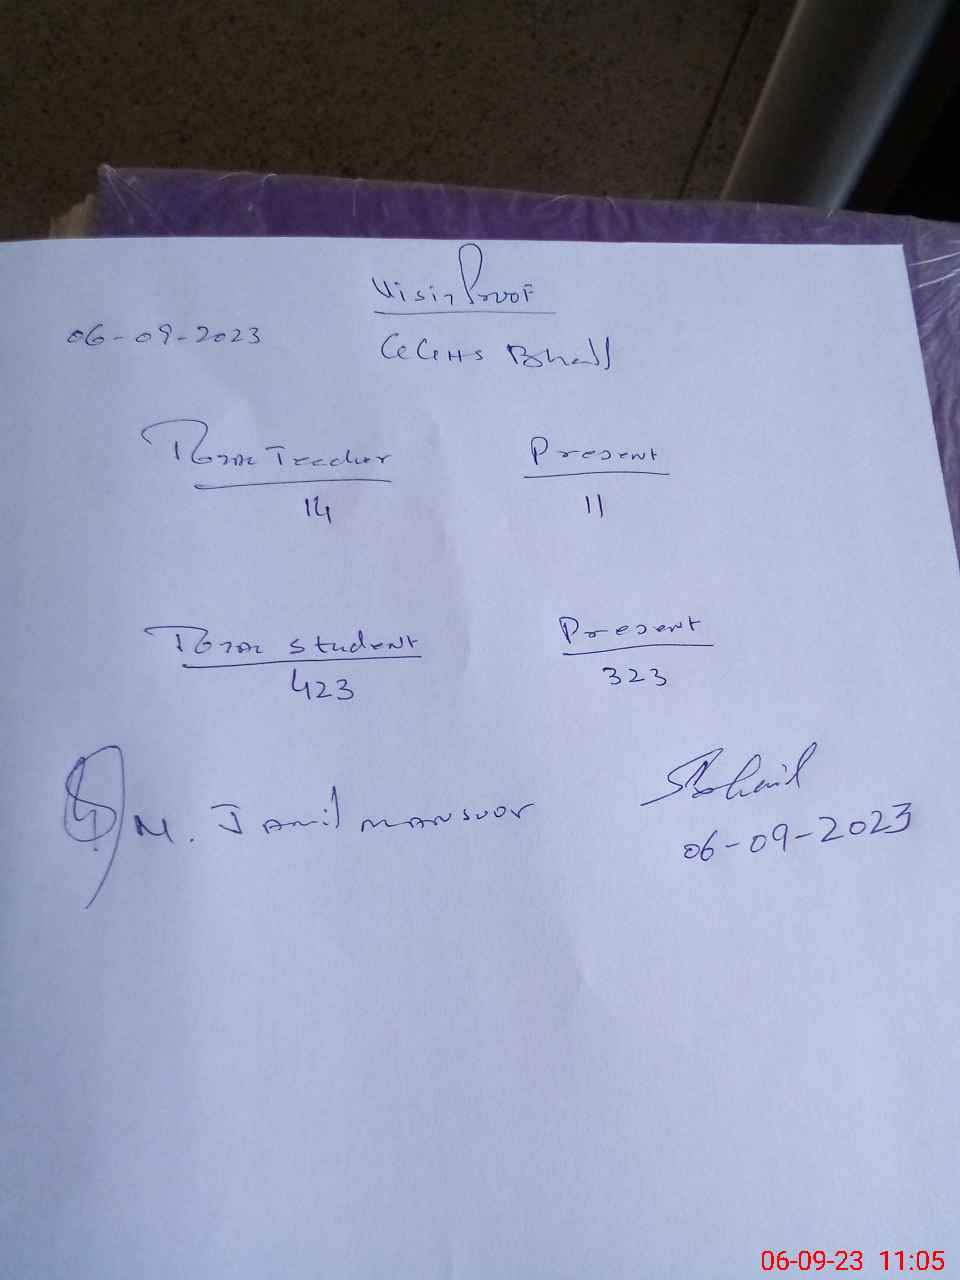 Visit Proof
06-09-2023
GGHS Bhall
Total Teacher Present
14 11
Total Student Present
423 323
M. Jamil Mansoor
06-09-2023
06-09-23 11:05